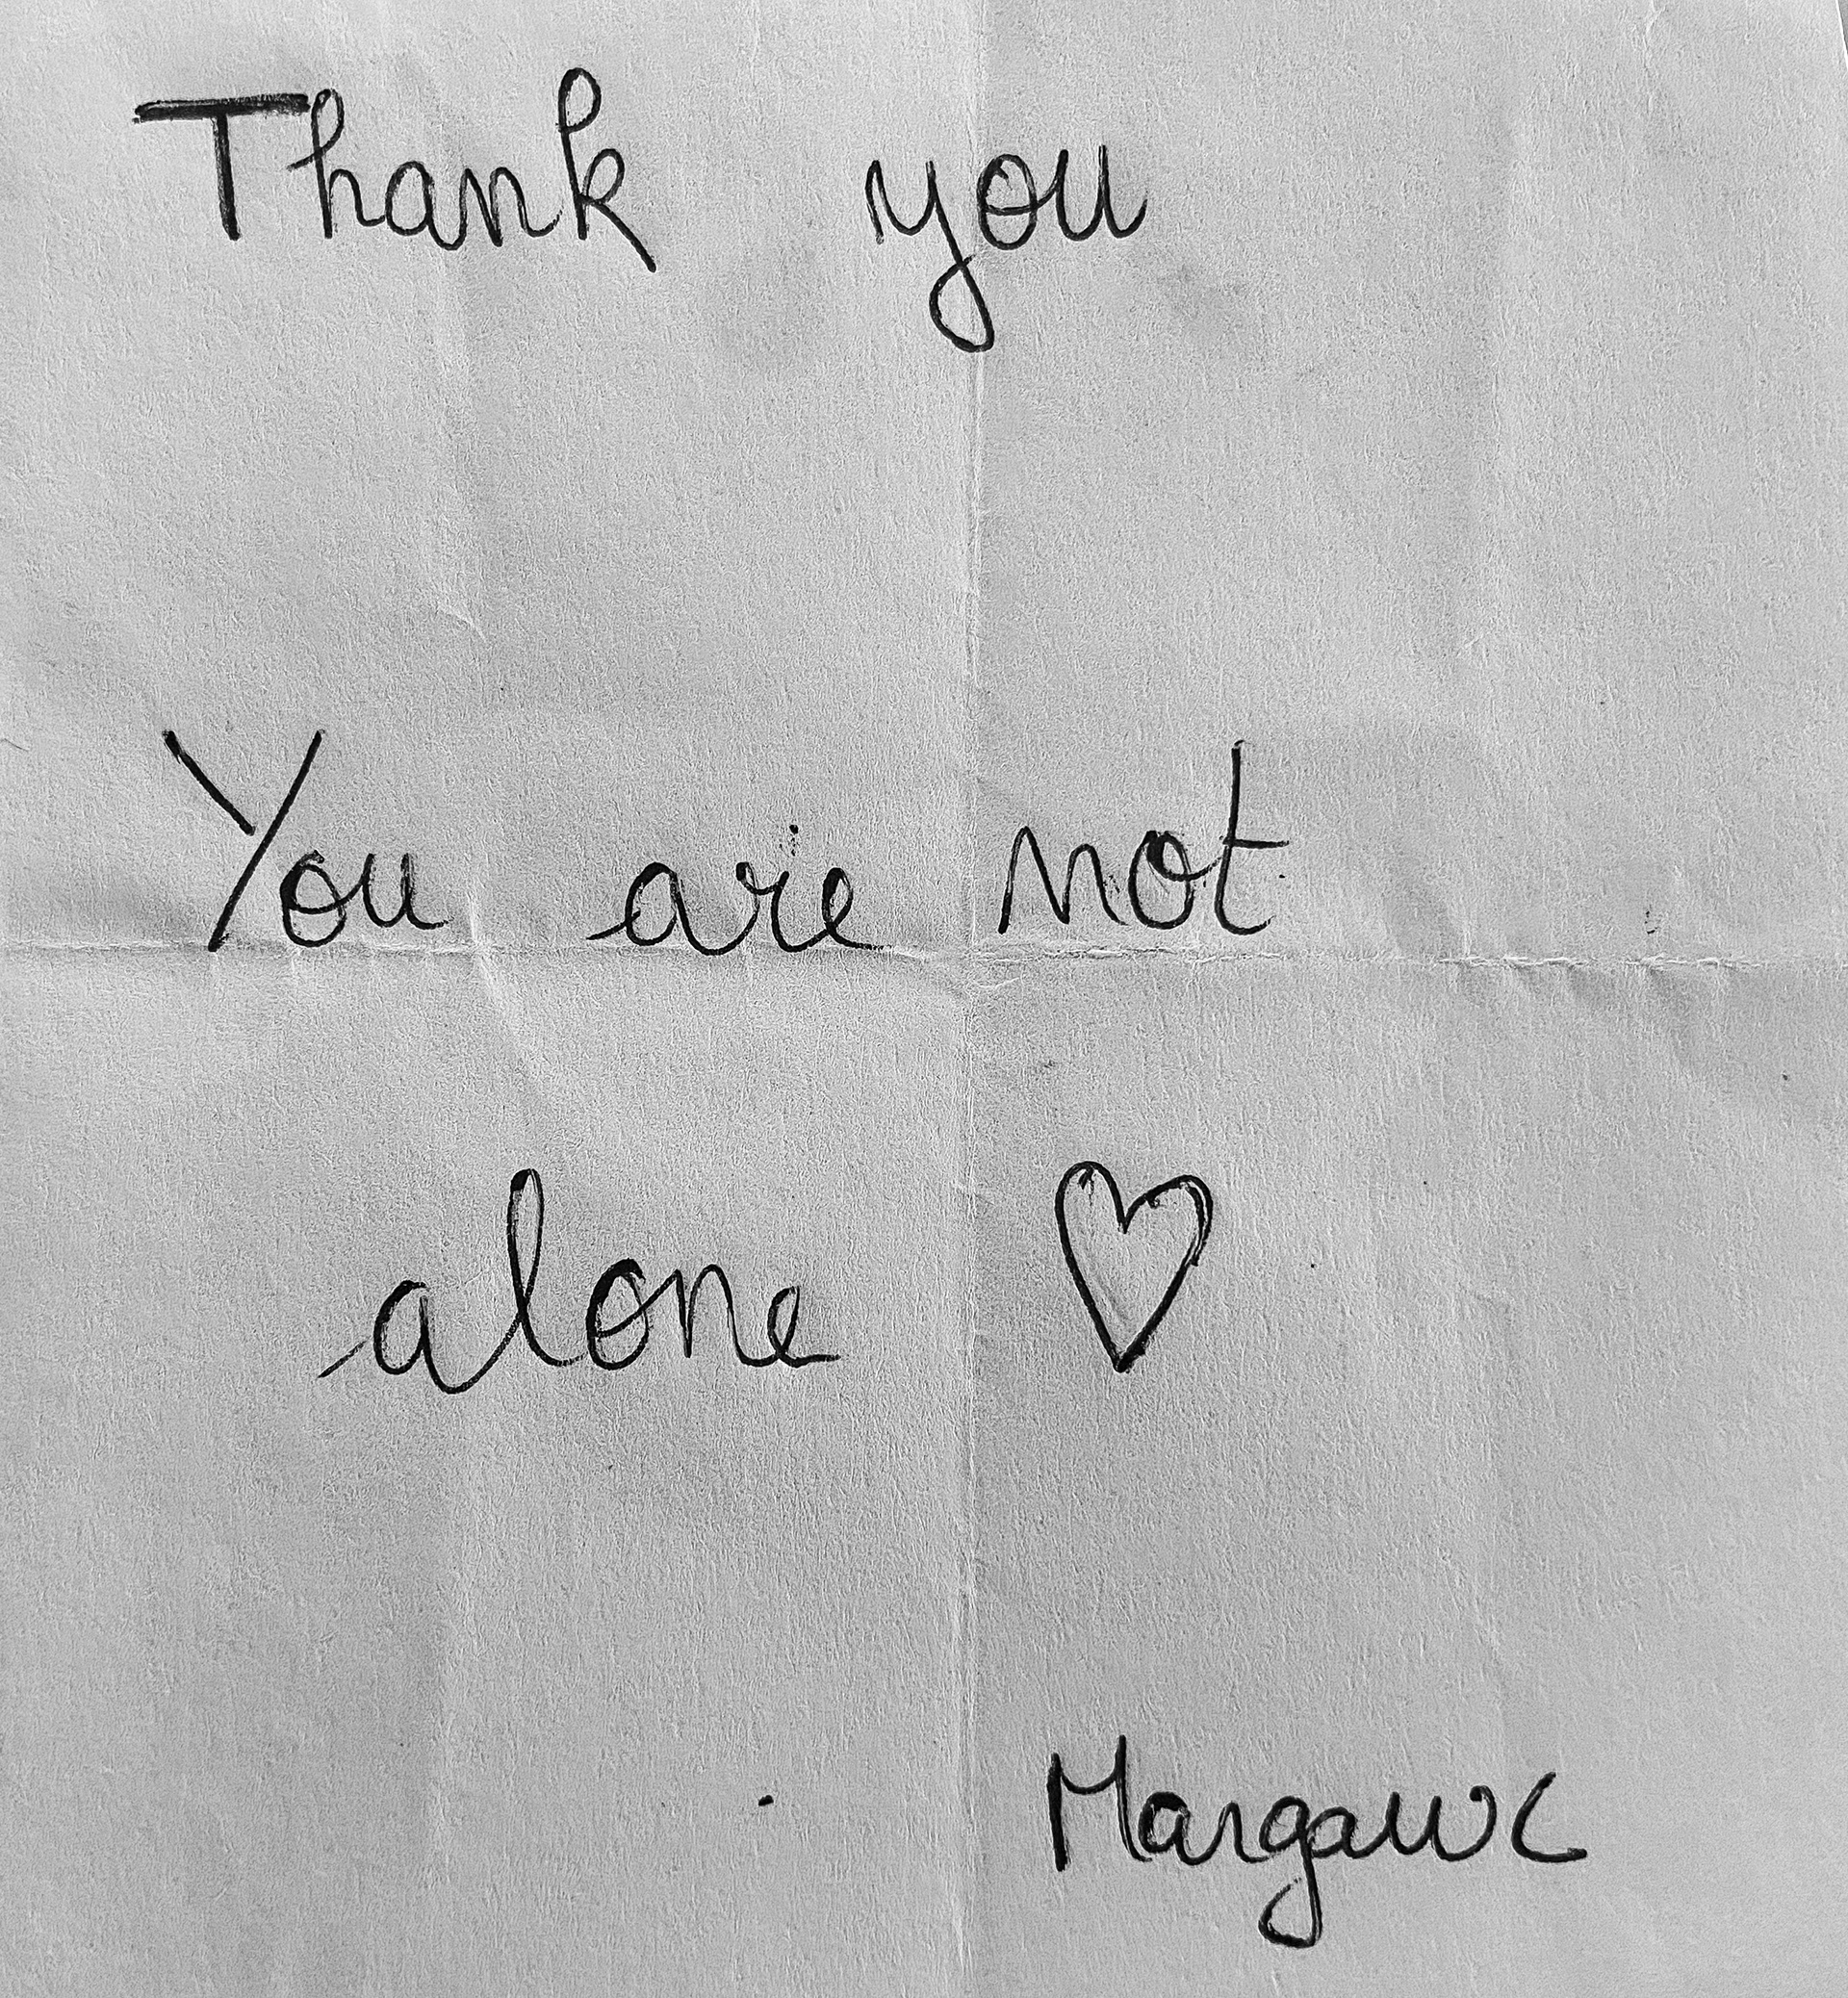 Thank you
You are not
alone ♡